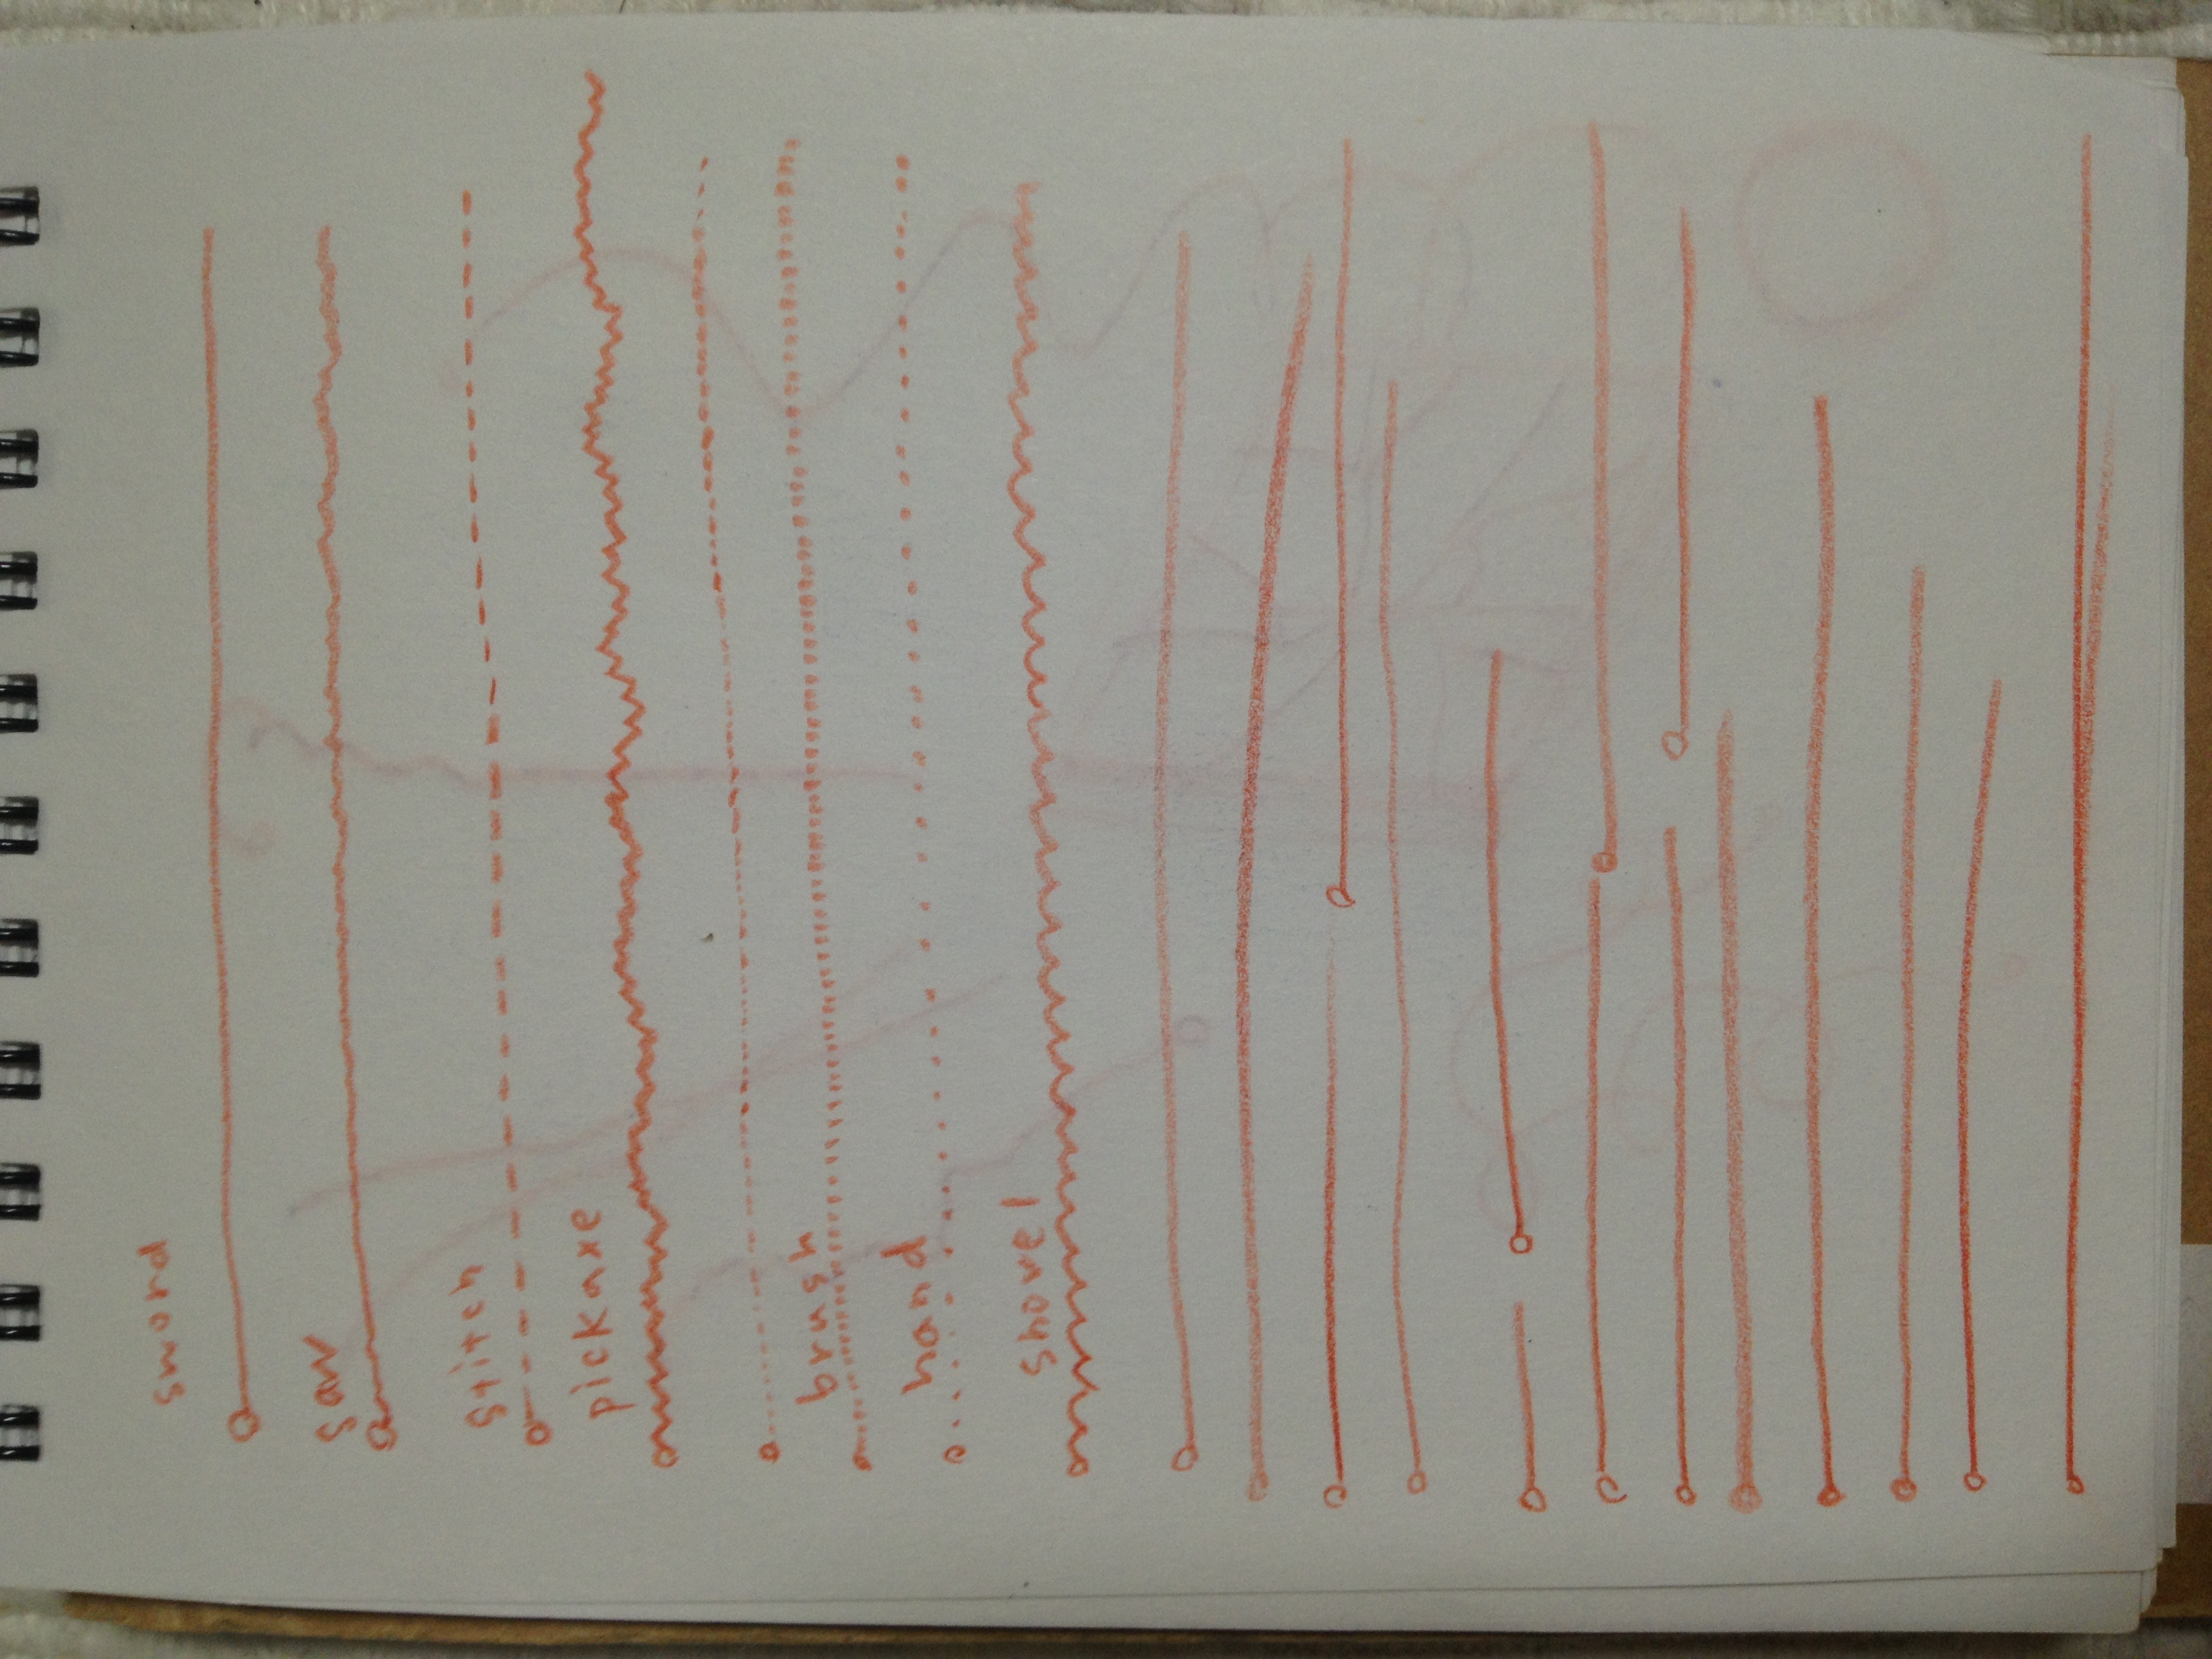 sword
saw
stitch
pickaxe
brush
hand
shovel